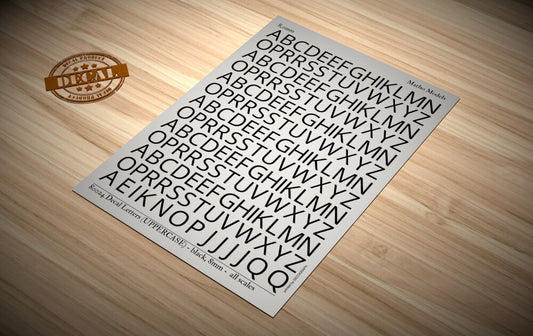 DECAL
Matho Models
ABCDEEFGHIKLMN
OPRRSSTUVWXYZ
ABCDEEFGHIKLMN
OPRRSSTUVWXYZ
ABCDEEFGHIKLMN
OPRRSSTUVWXYZ
ABCDEEFGHIKLMN
OPRRSSTUVWXYZ
ABCDEEFGHIKLMN
OPRRSSTUVWXYZ
AEIKNOP JJJJQQ
80024 Decal Letters (UPPERCASE) - black, 8mm - all scales